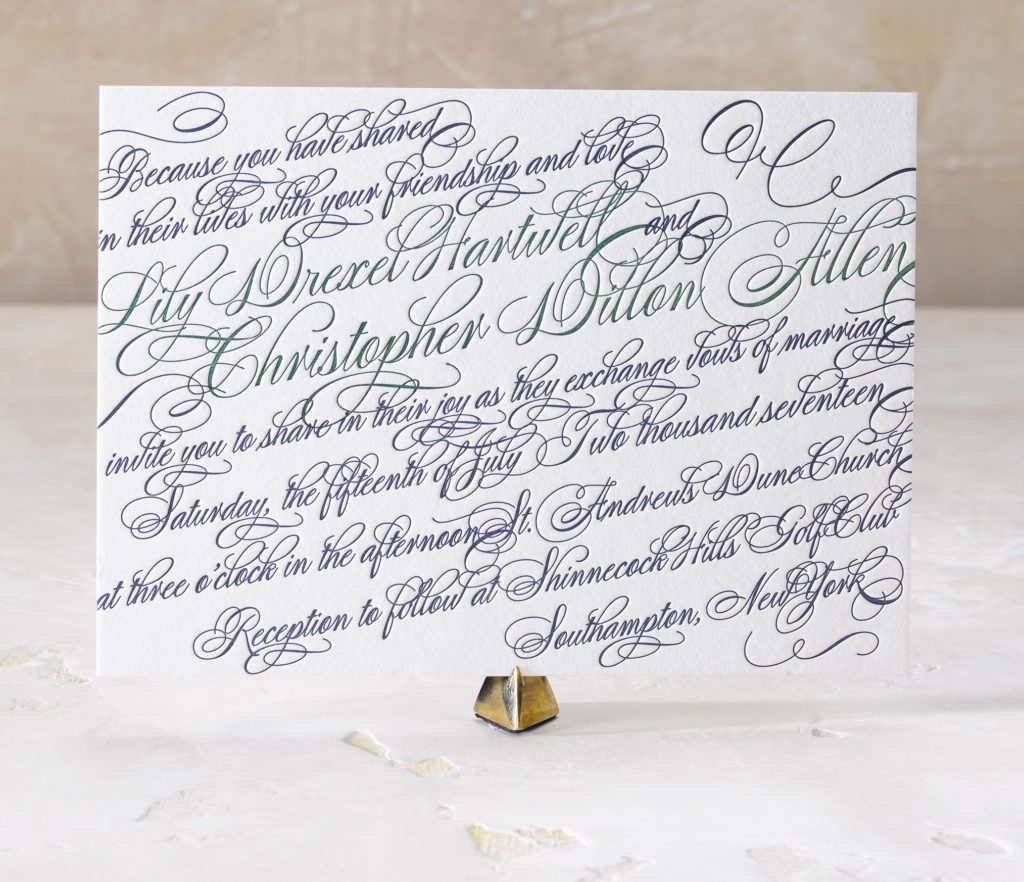 Because you have shared
in their lives with your friendship and love
Lily Drexel Hartwell and
Christopher Dillon Allen
invite you to share in their joy as they exchange vows of marriage
Saturday, the fifteenth of July Two thousand seventeen
at three o'clock in the afternoon St. Andrew's Dune Church
Reception to follow at Shinnecock Hills Golf Club
Southampton, New York